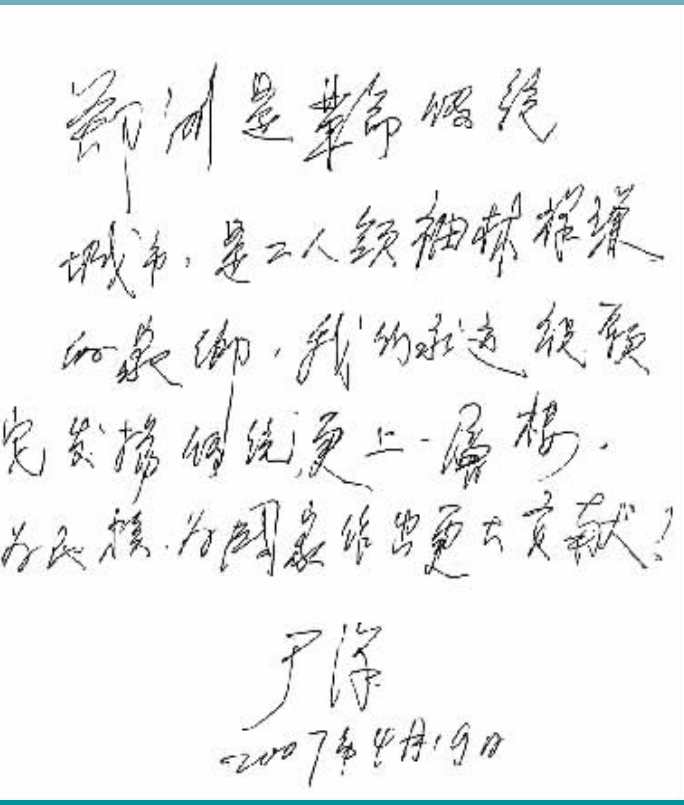 郑州是革命传统
城市,是工人领袖林祥谦
的家乡,我们永远祝愿
它发扬传统,更上一层楼。
为民族、为国家作出更大贡献!
2007年4月19日